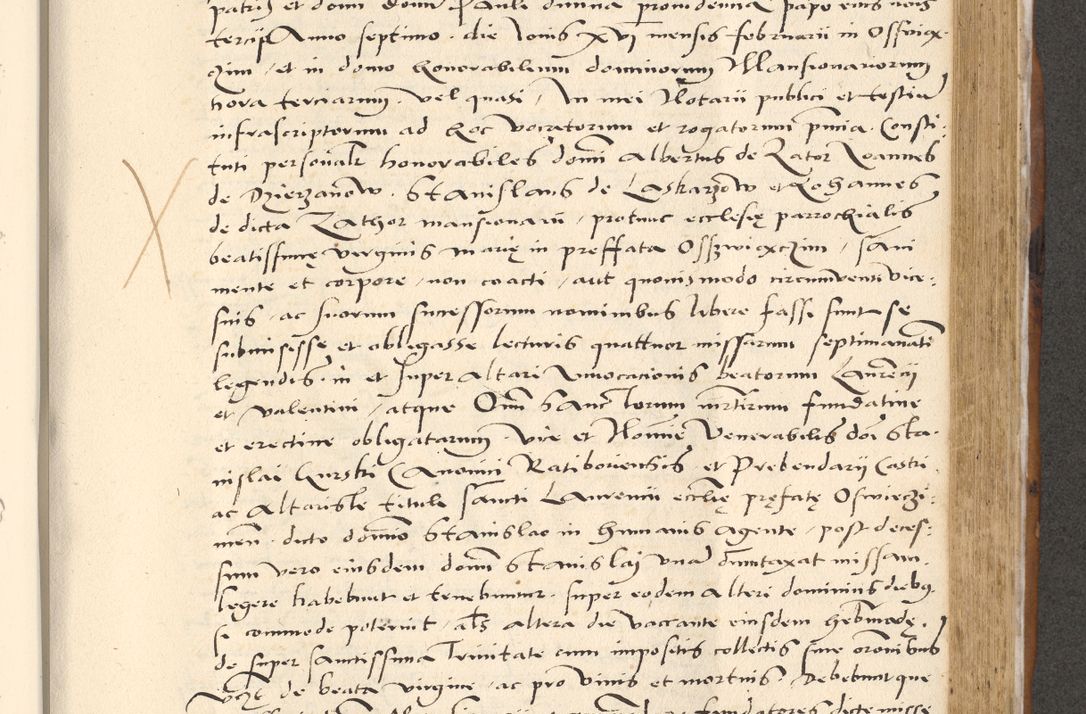 patris et domi domi Pauli divina providencia pape eius nois
tercij Anno septimo die Iovis XVI mensis februarii in Osswiąx
czim et in domo honorabilium dominorum Mansionariorum
hora terciarum vel quasi In mei Notarii publici et testiu
infrascriptorum ad hoc vocatorum et rogatorum pncia Consti:
tuti personalr honorabiles domi Albertus de Zator Ioannes
de Dzierzanow Stanislaus de Laskarzow et Iohannes
de dicta Zathor mansionarii protunc ecclesię parrochialis
beatissimę virginis marię in preffata Osswiąxczim sani
mente et corpore non coacti aut quovismodo circumventi vice:
suis ac suorum successorum nominibus libere fassi sunt se
submisisse et obligasse lecturis quattuor missarum septimanati
legendis in et super Altari Invocationis beatorum Laurecij
et valentini atque Oim Sanctorum mrtirum fundatine
et erectine obligatarum vice et Nomie Venerabilis doi Sta:
nislai Kurski Canonici Ratiboriensis et Prebendarij Castri
ac Altariste tituli sancti Laurencii ecclie pręfatę Oswieczi:
men dicto domio Stanislao in humanis agente post deces:
sum vero eiusdem domi Stanislai una dumtaxat missam
legere habebunt et tenebuntur super eodem Altari dominius diebus
si commode poterunt als altera die vaccante eiusdem hebmadę
de super sanctissima Trinitate cum impositis collectis sine oronibus
vcz de beata virgine ac pro vivis et mortuis Debebuntque
fundatores dicte misse